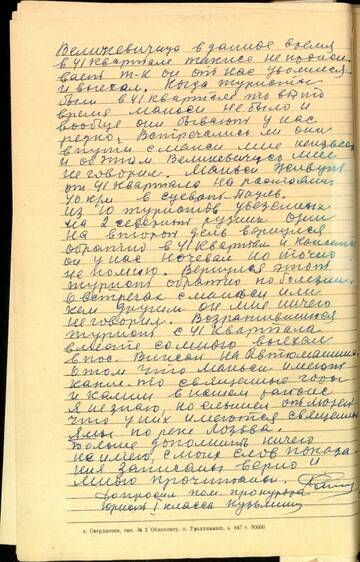 Великевичуса в данное время
в 41 квартале также не прожи-
вает т-к он от нас уволился
и выехал. Когда туристы
были в 41 квартале то в это
время манси не было и
вообще они бывают у нас
редко. Встречались ли они
в пути с манси мне неизвестно
и об этом Великевичус мне
не говорил. Манси живут
от 41 квартала на расстоянии
40 км в Суеват Пауль.
Из 10 туристов уехавших
на 2 северный рудник один
на второй день вернулся
обратно в 41 квартал и
он у нас ночевал но точно
не помню. Вернулся этот
турист обратно по болезни.
О встречах с манси или
кем другим он мне ничего
не говорил. Возвратившийся
турист с 41 квартала
вместе со мной выехал
в пос. Вижай на автомашине
О том что манси имеют
какие-то священные горы
и камни в нашем районе
я не знаю, но слышал от людей
что у них имеются священные
ямы по реке Лозьва.
Больше дополнить ничего
не имею, с моих слов показа-
ния записаны верно и
мною прочитаны.
Допросил пом. прокурора
юрист 1 класса Кузьминых
г. Свердловск, тип. № 2 Облполигр. п. Уралхиммаш. з. 647 т. 90000